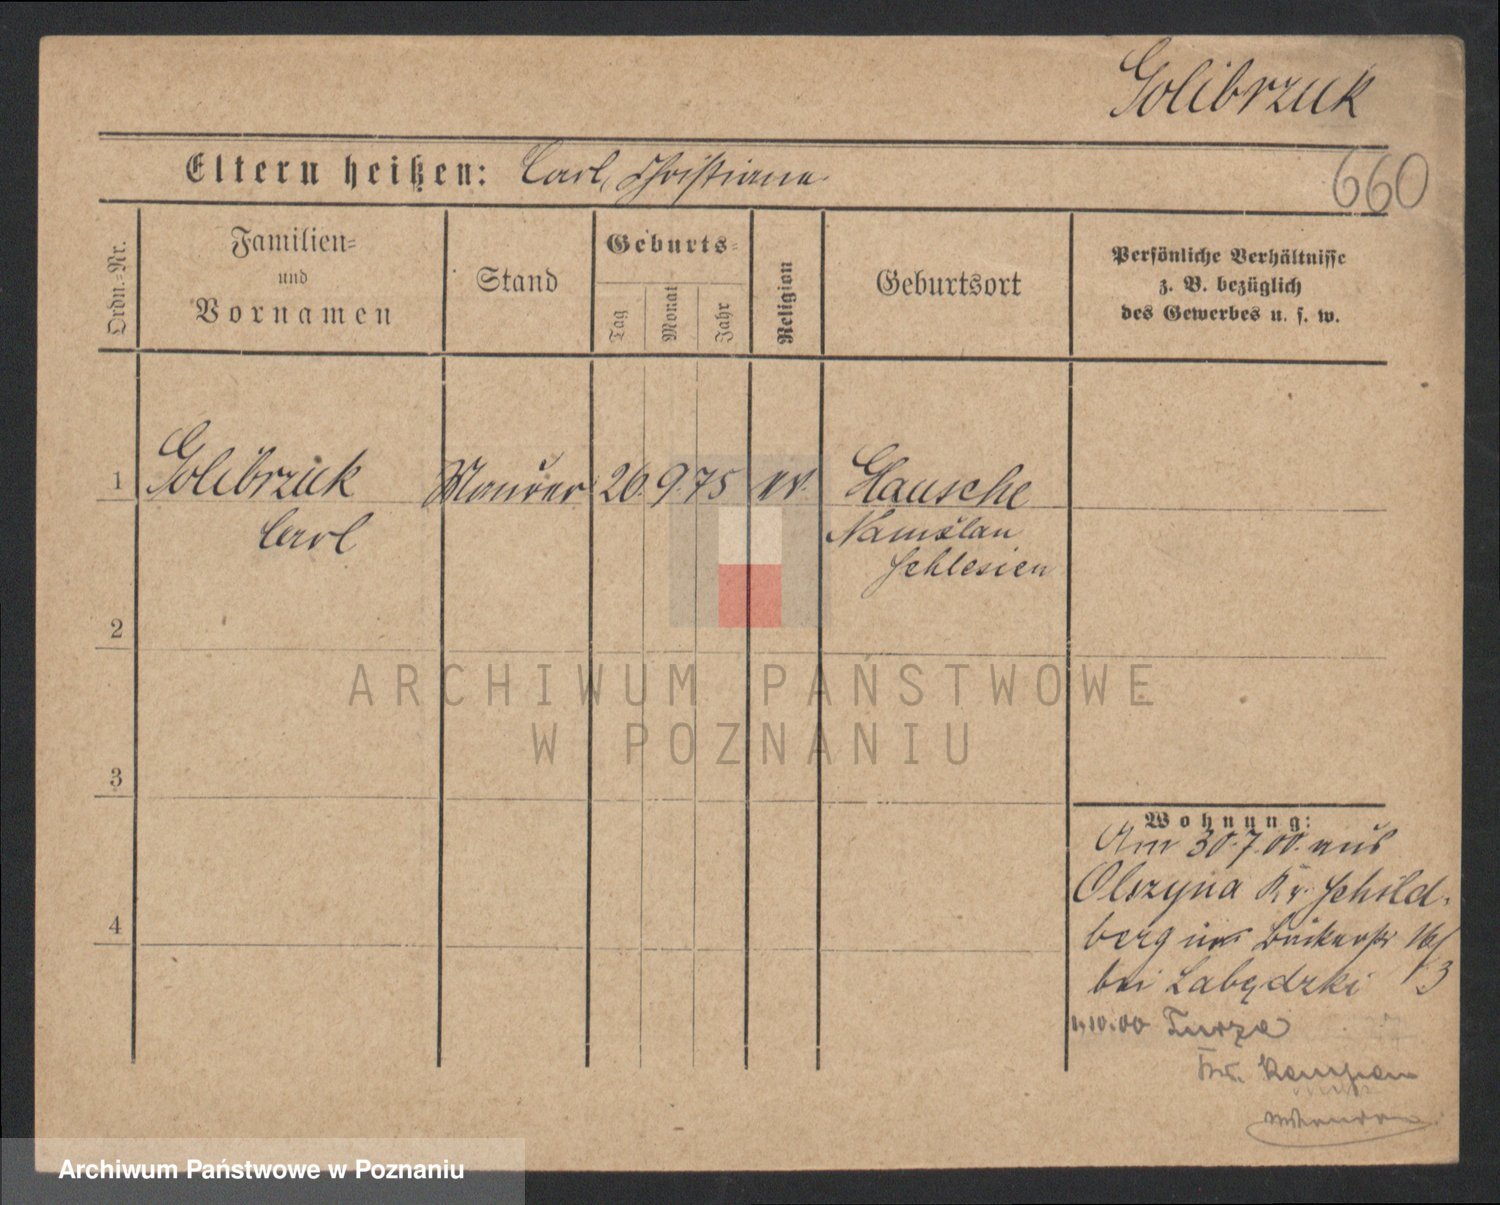 Golibrzuk
660
Eltern heißen: Carl, Christiane
Ordn.-Nr.
Familien-
und
Vornamen
Stand
Geburts-
Tag
Monat
Jahr
Religion
Geburtsort
Persönliche Verhältnisse
z. B. bezüglich
des Gewerbes u. s. w.
1 Golibrzuk Maurer 26. 9. 75 ev. Glausche
Carl Namslau
Schlesien
2
3
4
Wohnung:
Am 30.7.00. aus
Olszyna Kr. Schild-
berg Bäckerstr 16/
bei Labędzki 13
10.00 Turze
Kempen
ARCHIWUM PAŃSTWOWE
W POZNANIU
Archiwum Państwowe w Poznaniu